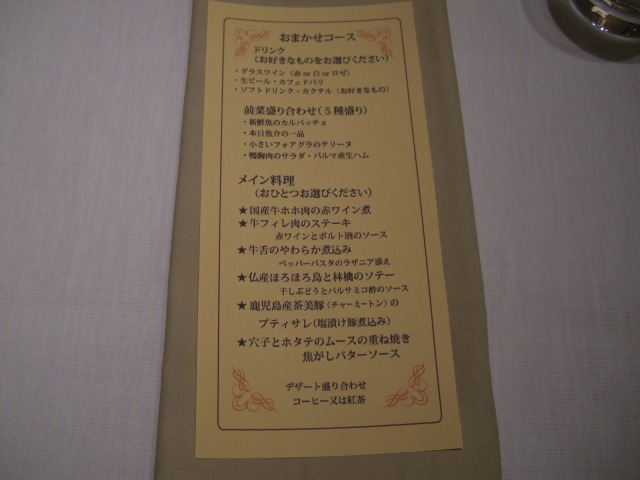 おまかせコース
ドリンク
（お好きなものをお選びください）
・グラスワイン（赤 or 白 or ロゼ）
・生ビール・カフェドパリ
・ソフトドリンク・カクテル（お好きなもの）
前菜盛り合わせ（５種盛り）
・新鮮魚のカルパッチョ
・本日魚介の一品
・小さいフォアグラのテリーヌ
・鴨胸肉のサラダ・パルマ産生ハム
メイン料理
（おひとつお選びください）
★国産牛ホホ肉の赤ワイン煮
★牛フィレ肉のステーキ
赤ワインとポルト酒のソース
★牛舌のやわらか煮込み
ペッパーパスタのラザニア添え
★仏産ほろほろ鳥と林檎のソテー
干しぶどうとバルサミコ酢のソース
★鹿児島産茶美豚（チャーミートン）の
プティサレ（塩漬け豚煮込み）
★穴子とホタテのムースの重ね焼き
焦がしバターソース
デザート盛り合わせ
コーヒー又は紅茶